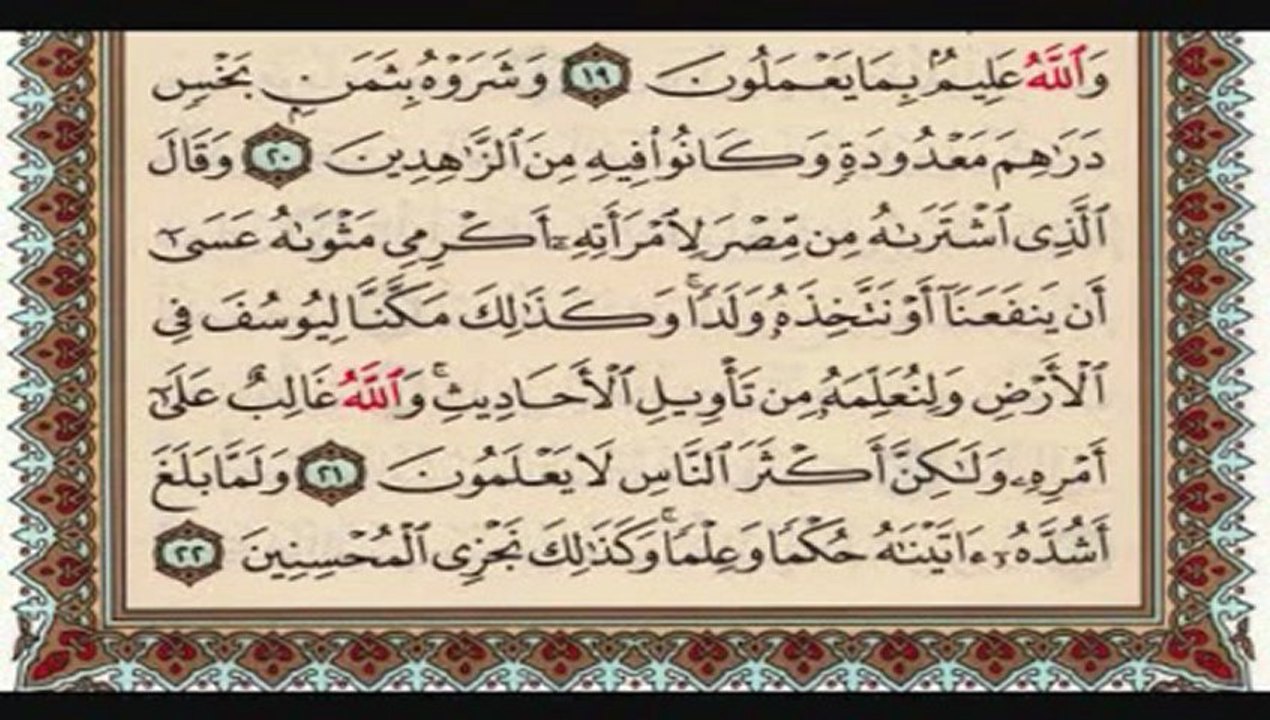 وَٱللَّهُ عَلِيمٌۢ بِمَا يَعۡمَلُونَ ١٩ وَشَرَوۡهُ بِثَمَنِۭ بَخۡسٖ
دَرَٰهِمَ مَعۡدُودَةٖ وَكَانُواْ فِيهِ مِنَ ٱلزَّٰهِدِينَ ٢٠ وَقَالَ
ٱلَّذِي ٱشۡتَرَىٰهُ مِن مِّصۡرَ لِٱمۡرَأَتِهِۦٓ أَكۡرِمِي مَثۡوَىٰهُ عَسَىٰٓ
أَن يَنفَعَنَآ أَوۡ نَتَّخِذَهُۥ وَلَدٗاۚ وَكَذَٰلِكَ مَكَّنَّا لِيُوسُفَ فِي
ٱلۡأَرۡضِ وَلِنُعَلِّمَهُۥ مِن تَأۡوِيلِ ٱلۡأَحَادِيثِۚ وَٱللَّهُ غَالِبٌ عَلَىٰٓ
أَمۡرِهِۦ وَلَٰكِنَّ أَكۡثَرَ ٱلنَّاسِ لَا يَعۡلَمُونَ ٢١ وَلَمَّا بَلَغَ
أَشُدَّهُۥٓ ءَاتَيۡنَٰهُ حُكۡمٗا وَعِلۡمٗاۚ وَكَذَٰلِكَ نَجۡزِي ٱلۡمُحۡسِنِينَ ٢٢